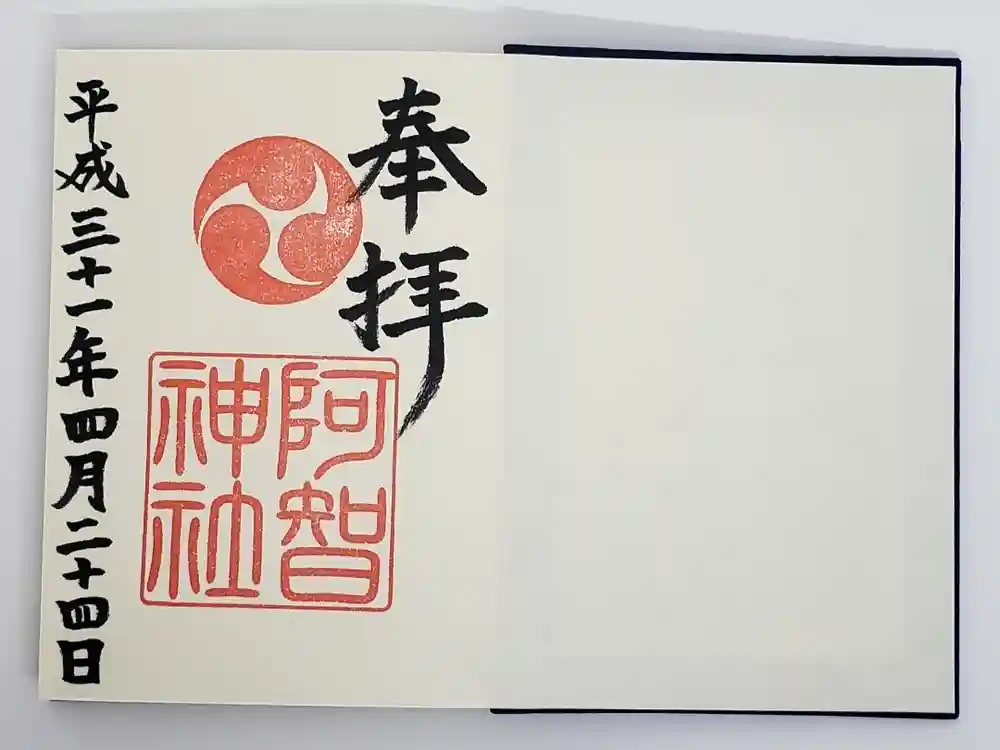 奉拝
阿智
神社
平成三十一年四月二十四日